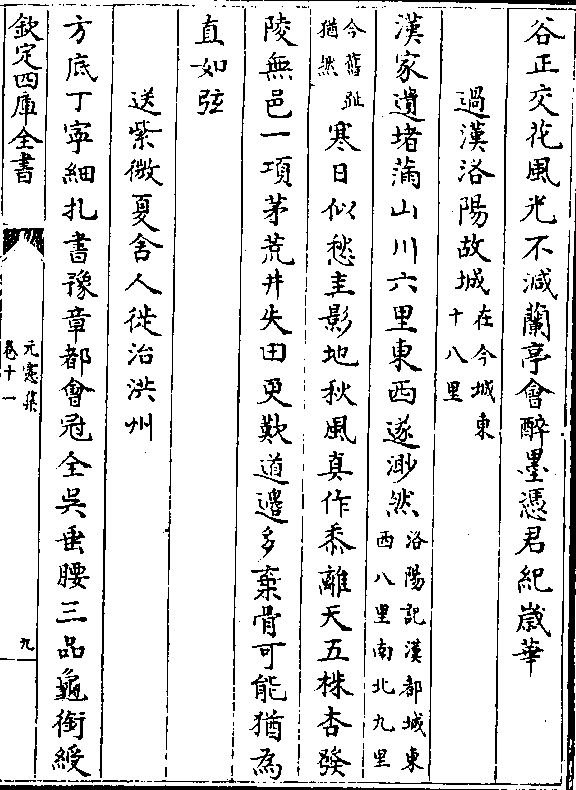 谷正交花風光不減蘭亭會醉墨憑君紀歲華
過漢洛陽故城在今城東
十八里
漢家遺堵滿山川六里東西遂渺然洛陽記漢都城東
西八里南北九里
今舊趾
猶然寒日似愁圭影地秋風真作黍離天五株杏發
陵無邑一項茅荒井失田更歎道邉多棄骨可能猶為
直如弦
送紫微夏舍人徙治洪州
方底丁寧細扎書豫章都會冠全吳垂腰三品龜銜綬
欽定四庫全書
元憲集
卷十一
九